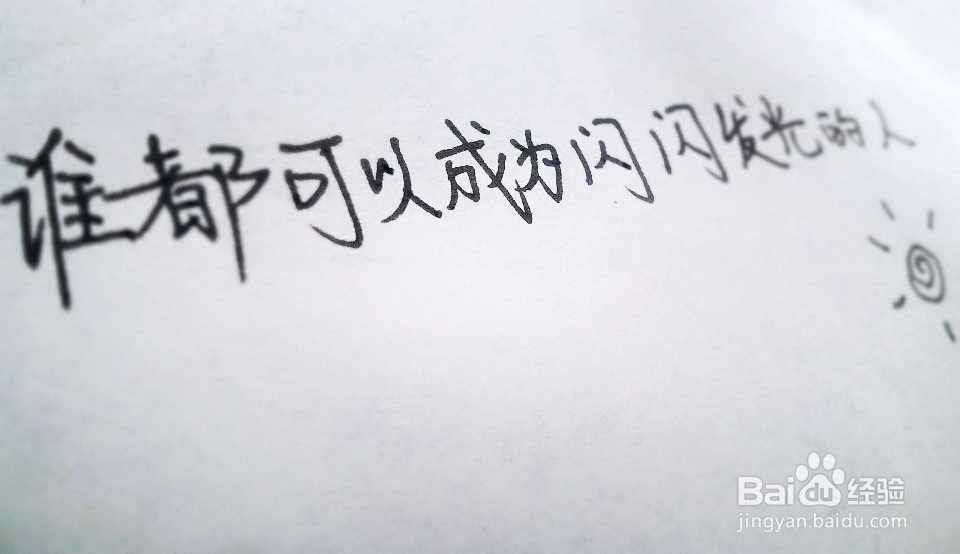 谁都可以成为闪闪发光的人
Baidu经验
jingyan.baidu.com